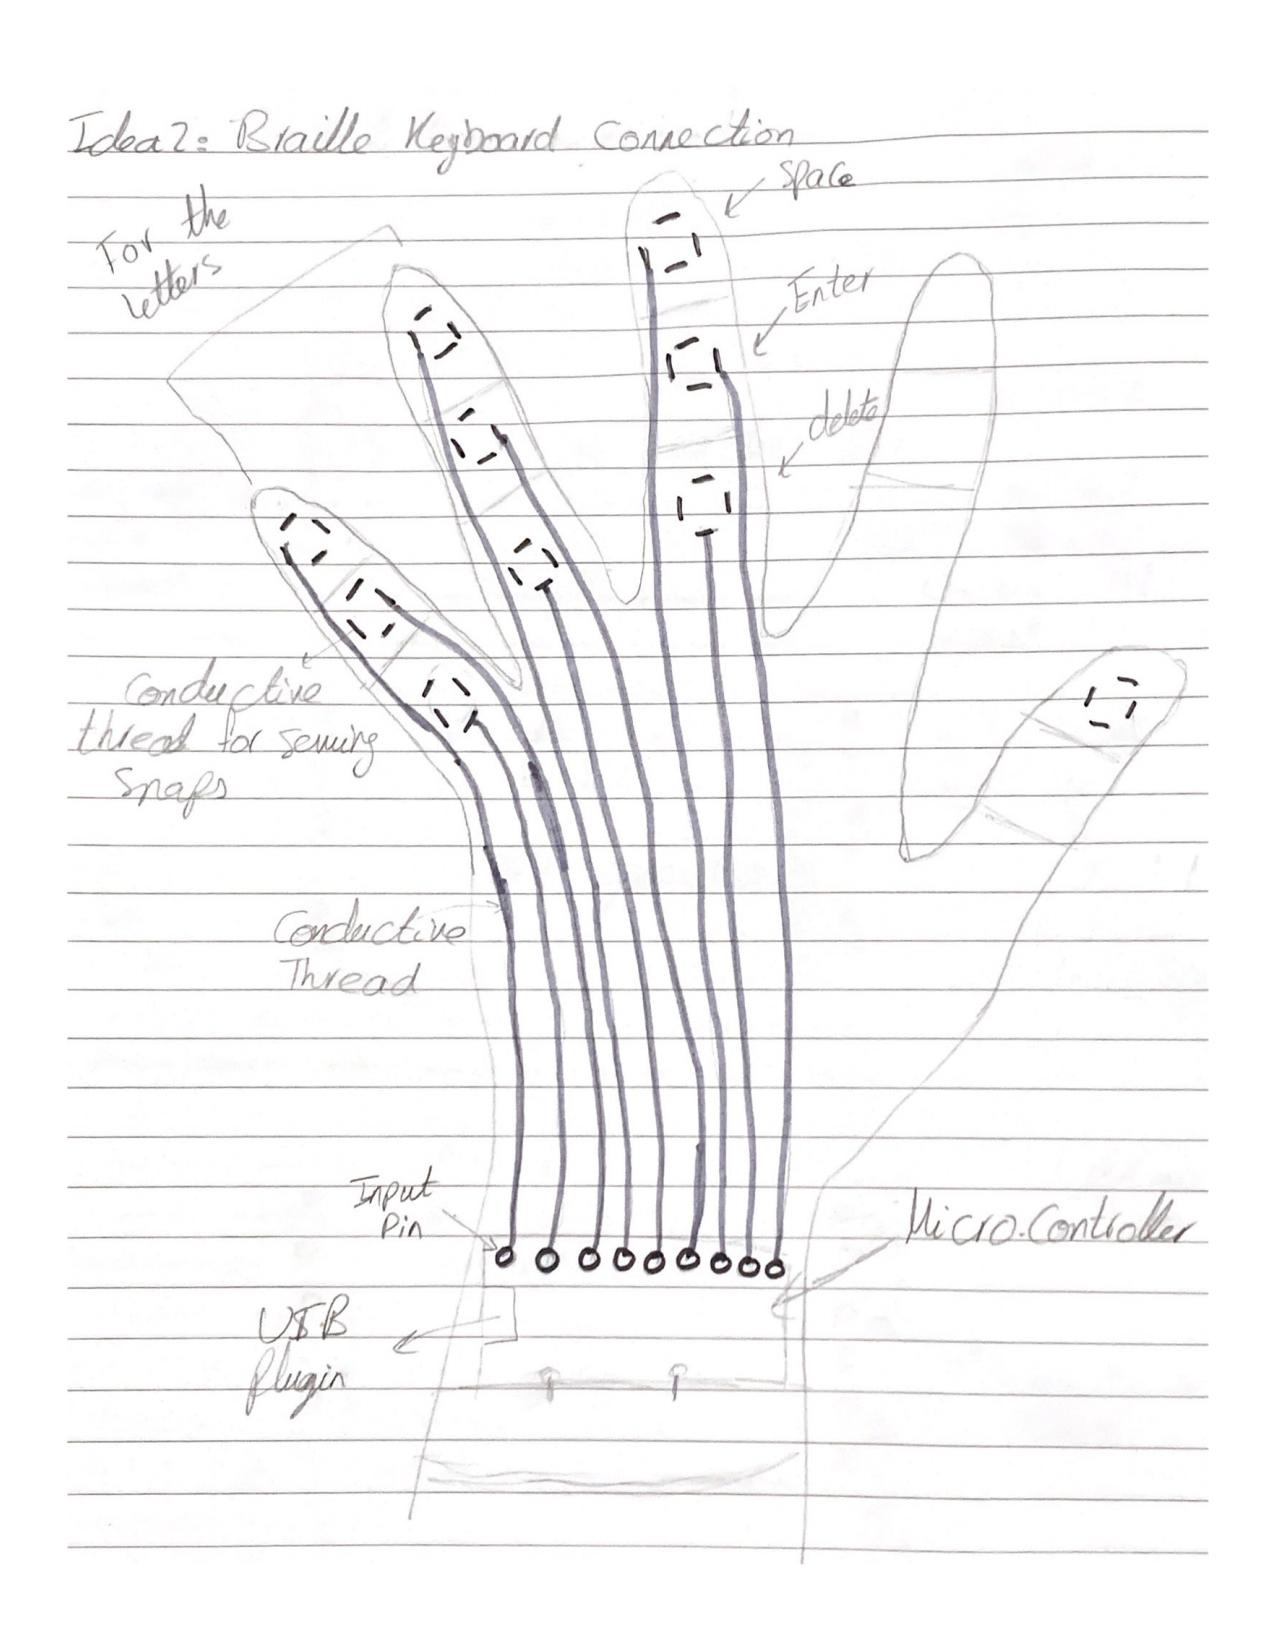 Idea 2: Braille Keyboard Connection
Space
For the
letters
Enter
delete
Conductive
thread for sewing
Snaps
Conductive
Thread
Input
Pin
Micro.Controller
USB
Plugin